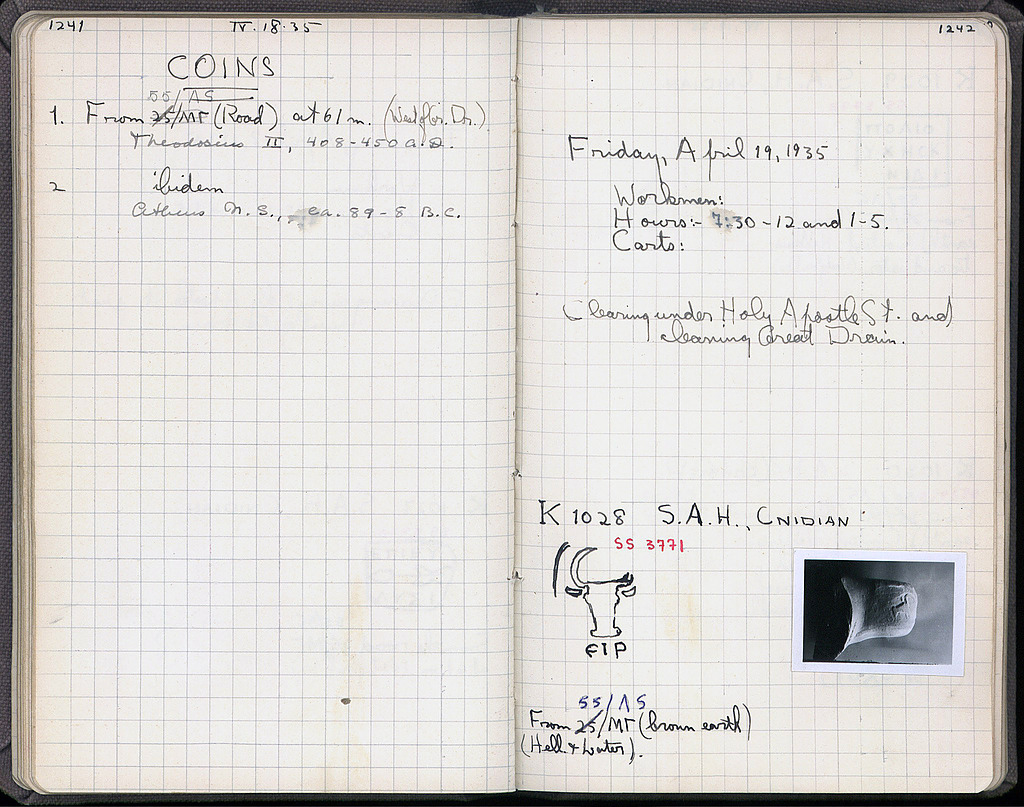 1241
IV.18.35
COINS
55/ΛΣ
1. From 25/ΜΓ (Road) at 61 m.
Theodosius II, 408-450 A.D.
2 ibidem
Athens N.S., ca. 89-8 B.C.
1242
Friday, April 19, 1935
Workmen:
Hours:- 7:30-12 and 1-5.
Carts:
Clearing under Holy Apostle St. and
cleaning Great Drain.
K 1028 S.A.H., CNIDIAN
SS 3771
ΕΙΡ
55/ΛΣ
From 25/ΜΓ (brown earth)
(Hell. & Later).